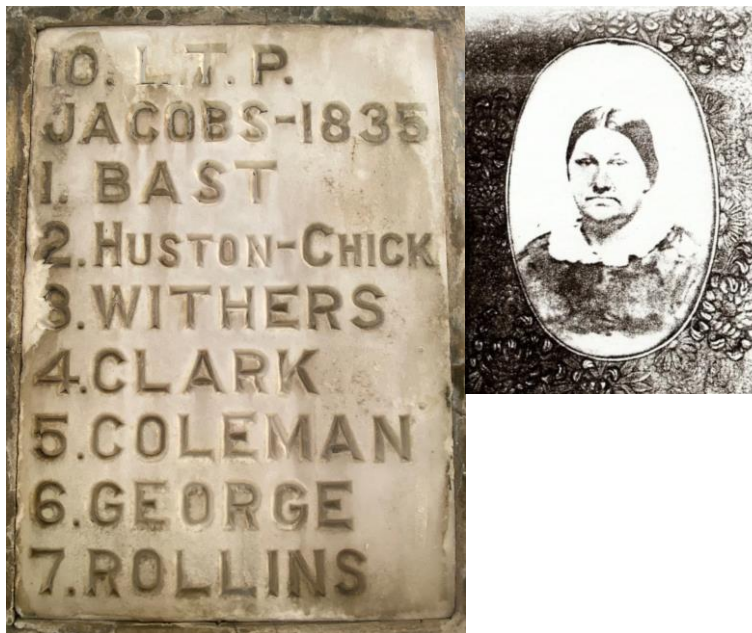 10. L.T.P.
JACOBS-1835
1. BAST
2. HUSTON-CHICK
3. WITHERS
4. CLARK
5. COLEMAN
6. GEORGE
7. ROLLINS